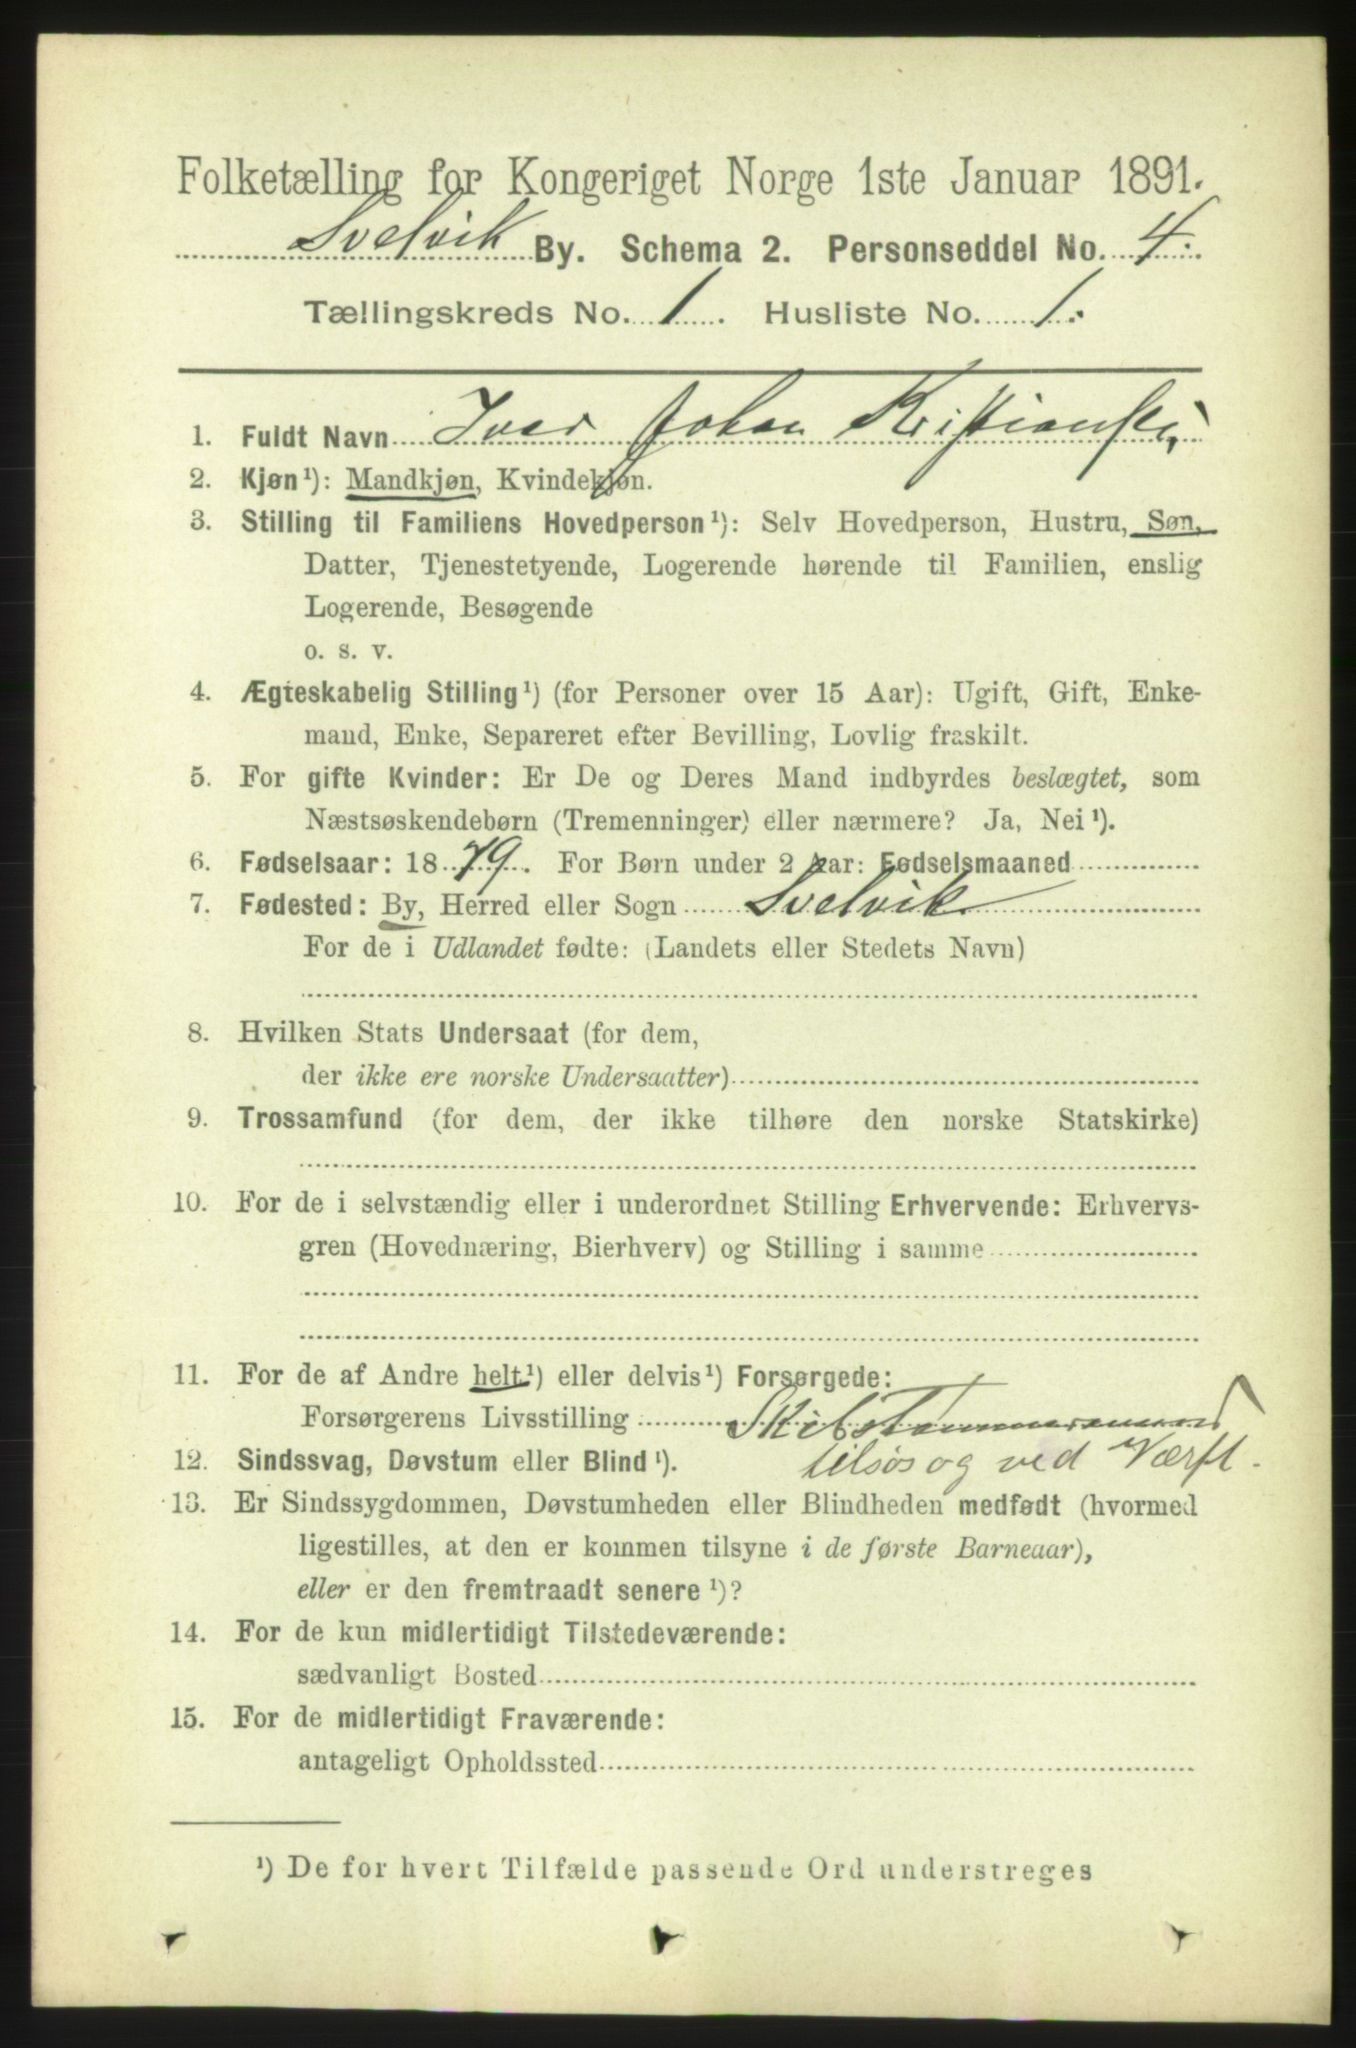 Folketælling for Kongeriget Norge 1ste Januar 1891.
Svelvik By. Schema 2. Personseddel No. 4.
Tællingskreds No. 1. Husliste No. 1.
1. Fuldt Navn Iver Johan Kristiansen,
2. Kjøn¹): Mandkjøn, Kvindekjøn.
3. Stilling til Familiens Hovedperson¹): Selv Hovedperson, Hustru, Søn,
Datter, Tjenestetyende, Logerende hørende til Familien, enslig
Logerende, Besøgende
o. s. v.
4. Ægteskabelig Stilling¹) (for Personer over 15 Aar): Ugift, Gift, Enke-
mand, Enke, Separeret efter Bevilling, Lovlig fraskilt.
5. For gifte Kvinder: Er De og Deres Mand indbyrdes beslægtet, som
Næstsøskendebørn (Tremenninger) eller nærmere? Ja, Nei¹).
6. Fødselsaar: 1879. For Børn under 2 Aar: Fødselsmaaned
7. Fødested: By, Herred eller Sogn Svelvik
For de i Udlandet fødte: (Landets eller Stedets Navn)
8. Hvilken Stats Undersaat (for dem,
der ikke ere norske Undersaatter)
9. Trossamfund (for dem, der ikke tilhøre den norske Statskirke)
10. For de i selvstændig eller i underordnet Stilling Erhvervende: Erhvervs-
gren (Hovednæring, Bierhverv) og Stilling i samme
11. For de af Andre helt¹) eller delvis¹) Forsørgede:
Forsørgerens Livsstilling Skibstømmermand
12. Sindssvag, Døvstum eller Blind¹). tilsøs og ved Værft.
13. Er Sindssygdommen, Døvstumheden eller Blindheden medfødt (hvormed
ligestilles, at den er kommen tilsyne i de første Barneaar),
eller er den fremtraadt senere¹)?
14. For de kun midlertidigt Tilstedeværende:
sædvanligt Bosted
15. For de midlertidigt Fraværende:
antageligt Opholdssted
¹) De for hvert Tilfælde passende Ord understreges